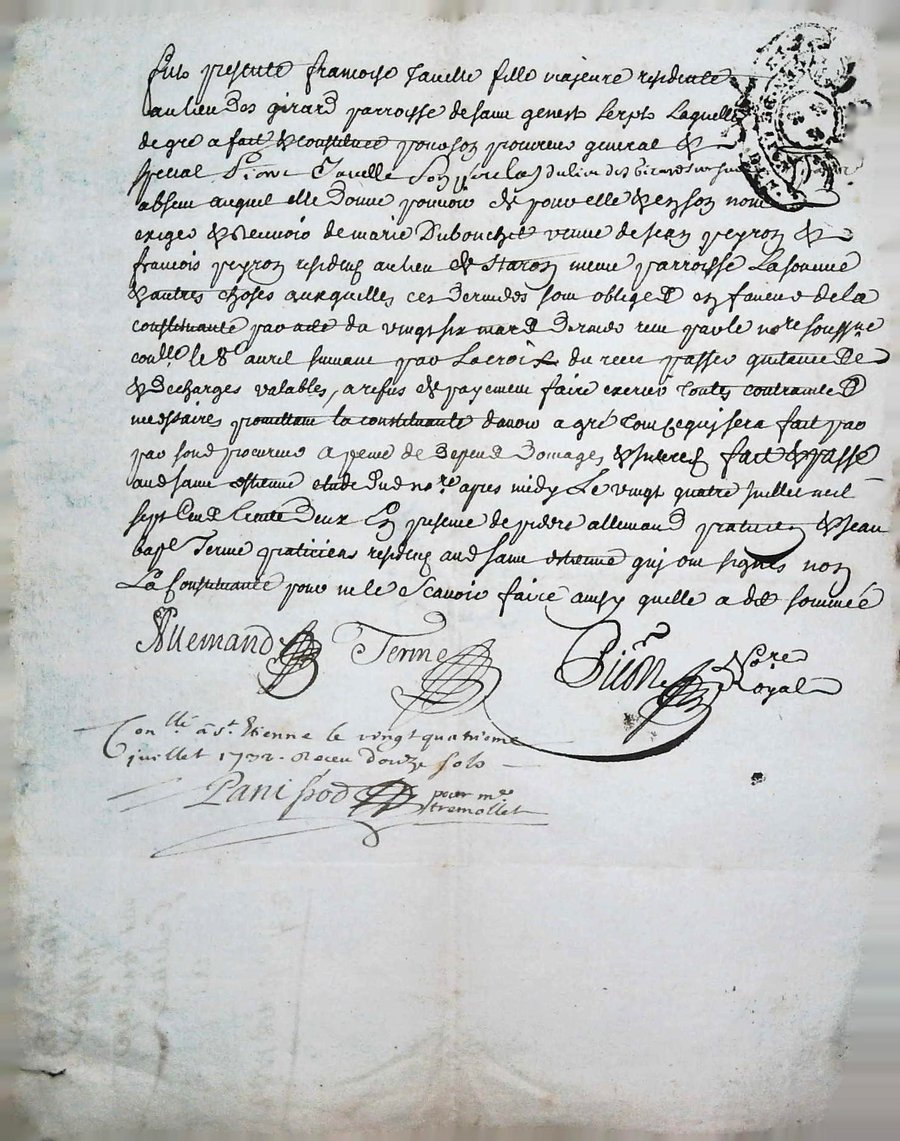 fut presente francoise Javelle fille majeure residente
au lieu des girard parroisse de saint genest Lerpt Laquelle
de gre a fait & constitue pour son procureur general &
special Javelle son du lieu des Girard
absent auquel elle donne pouvoir de pour elle & en son nom
exiger & recevoir de marie Dubouchet veuve de jean peyron &
francois peyron residens au lieu de meme parroisse La somme
& autres choses auxquelles ces derniers sont obliges en faveur de la
constituante par acte du vingt six mars dernier receu par le nore soussigne
conllé le 8e avril suivant par Lacroix du receu passer quitance
& decharges valables, a refus de payement faire exercer toutes contraintes
necessaires promettant la constituante d'avoir a gré tout ce qui sera fait par
par sond procureur a peine de depend domages & interets fait & passé
aud saint estienne etude dud nore apres midy Le vingt quatre juillet mil
sept cend trente deux En presence de pierre allemand praticien & jean
bapt Terme praticiens residens aud saint estienne qui ont signés non
La Constituante pour ne le scavoir faire ainsy quelle a dit sommée
Allemand Terme Picon Nore
Royal
Conllé à St. Etienne le vingt quatrieme
juillet 1732. Receu douze sols
Panissod pour mr
tremollet